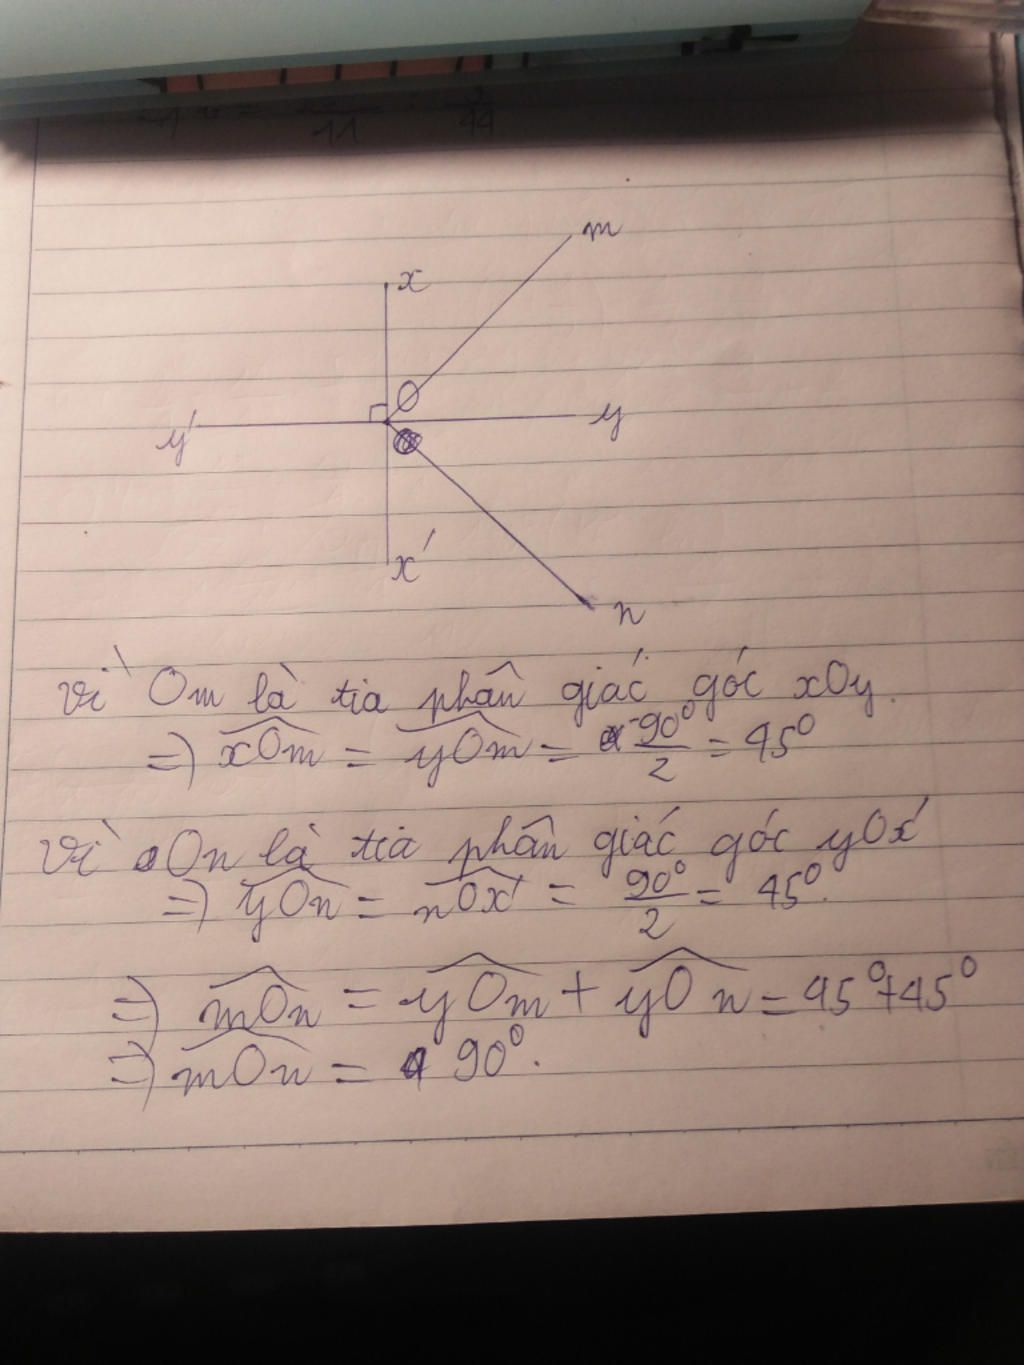 m
x
O
y'
y
x'
n
Vì Om là tia phân giác góc xOy.
=> xOm = yOm = 90⁰/2 = 45⁰
Vì On là tia phân giác góc yOx'
=> yOn = nOx' = 90⁰/2 = 45⁰.
=> mOn = yOm + yOn = 45⁰+45⁰
=> mOn = 90⁰.